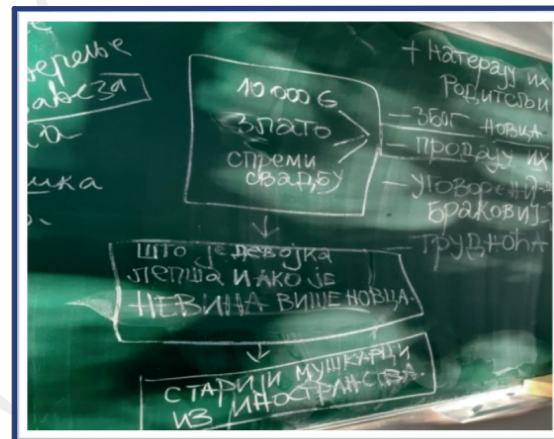 верење
10 000 €
ЗЛАТО
СПРЕМИ
СВАДБУ
ШТО ЈЕ ДЕВОЈКА
ЛЕПША И АКО ЈЕ
НЕВИНА ВИШЕ НОВЦА.
СТАРИЈИ МУШКАРЦИ
ИЗ ИНОСТРАНСТВА.
+ НАТЕРАЈУ ИХ
РОДИТЕЉИ
– ЗБОГ НОВЦА
– ПРОДАЈУ ИХ
– УГОВОРЕНИ
БРАКОВИ
– ТРУДНОЋА